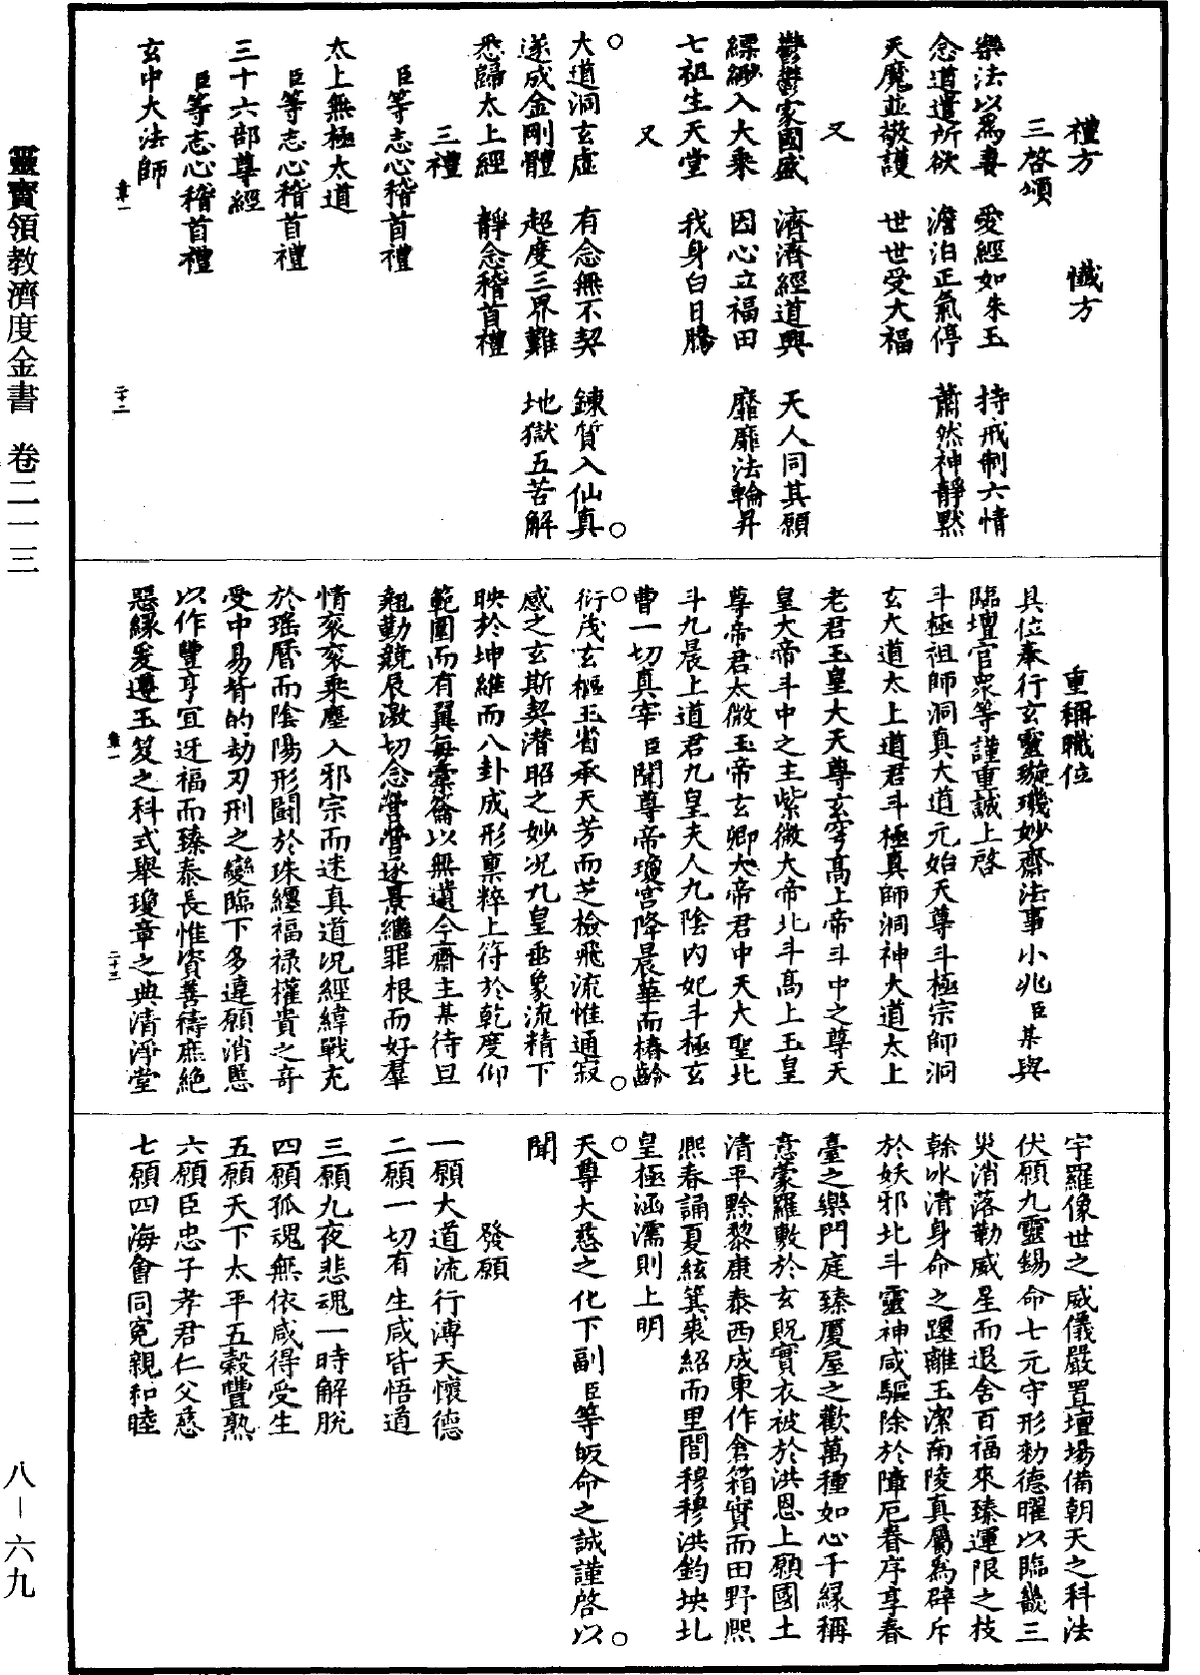 靈寶領教濟度金書　卷二一三
八－六九
禮方　懺方
三啓頌
樂法以爲妻　愛經如朱玉　持戒制六情
念道遣所欲　澹泊正氣停　蕭然神靜默
天魔並敬護　世世受大福
又
鬱鬱家國盛　濟濟經道興　天人同其願
縹緲入大乘　因心立福田　靡靡法輪昇
七祖生天堂　我身白日騰
又
大道洞玄虛　有念無不契　鍊質入仙真
遂成金剛體　超度三界難　地獄五苦解
悉歸太上經　靜念稽首禮
三禮
臣等志心稽首禮
太上無極太道
臣等志心稽首禮
三十六部尊經
臣等志心稽首禮
玄中大法師
章一　二十二
重稱職位
具位奉行玄靈璇璣妙齋法事小兆臣某與
臨壇官衆等謹重誠上啓
斗極祖師洞真大道元始天尊斗極宗師洞
玄大道太上道君斗極真師洞神大道太上
老君玉皇大天尊玄穹高上帝斗中之尊天
皇大帝斗中之主紫微大帝北斗高上玉皇
尊帝君太微玉帝玄卿大帝君中天大聖北
斗九晨上道君九皇夫人九陰內妃斗極玄
曹一切真宰臣聞尊帝瓊宮降晨華而椿齡
衍茂玄樞玉省承天芳而芝檢飛流惟通寂
感之玄斯契潛昭之妙况九皇垂象流精下
映於坤維而八卦成形稟粹上符於乾度仰
範圍而有翼每橐籥以無遺今齋主某待旦
翹勤競辰激切念營營逐景繼罪根而好羣
情袞袞乘塵入邪宗而迷真道况經緯戰充
於瑤曆而陰陽形鬪於珠纏福祿權貴之奇
受中易背的劫刃刑之變臨下多違願消慝
以作豐亨冝迓福而臻泰長惟資善禱庶絶
惡緣爰遵玉笈之科式舉瓊章之典清淨堂
章一　二十三
宇羅像世之威儀嚴置壇場備朝天之科法
伏願九靈錫命七元守形勑德曜以臨畿三
災消落勒威星而退舍百福來臻運限之枝
榦冰清身命之躔離玉潔南陵真屬爲辟斥
於妖邪北斗靈神咸驅除於障厄眷序享春
臺之樂門庭臻厦屋之歡萬種如心千緣稱
意蒙羅敷於玄貺實衣被於洪恩上願國土
清平黔黎康泰西成東作倉箱實而田野熙
熙春誦夏絃箕裘紹而里閭穆穆洪鈞坱北
皇極涵濡則上明
天尊大慈之化下副臣等皈命之誠謹啓以
聞
發願
一願大道流行溥天懷德
二願一切有生咸皆悟道
三願九夜悲魂一時解脫
四願孤魂無依咸得受生
五願天下太平五穀豐熟
六願臣忠子孝君仁父慈
七願四海會同寃親和睦